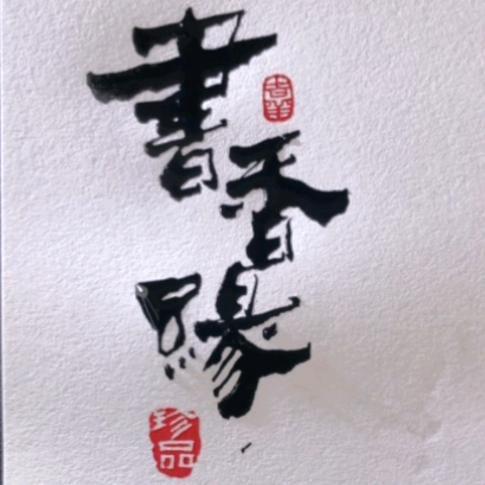 書香緣
吉羊
珍品